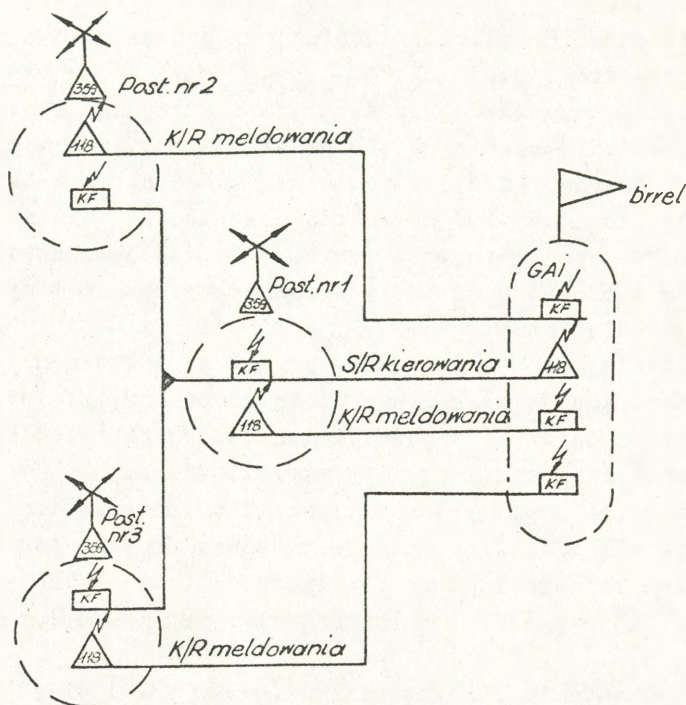 359
Post. nr 2
118
K/R meldowania
KF
birrel
359
Post. nr 1
GAI
KF
KF
S/R kierowania
118
118
K/R meldowania
KF
KF
359
Post.
nr 3
KF
118
K/R meldowania